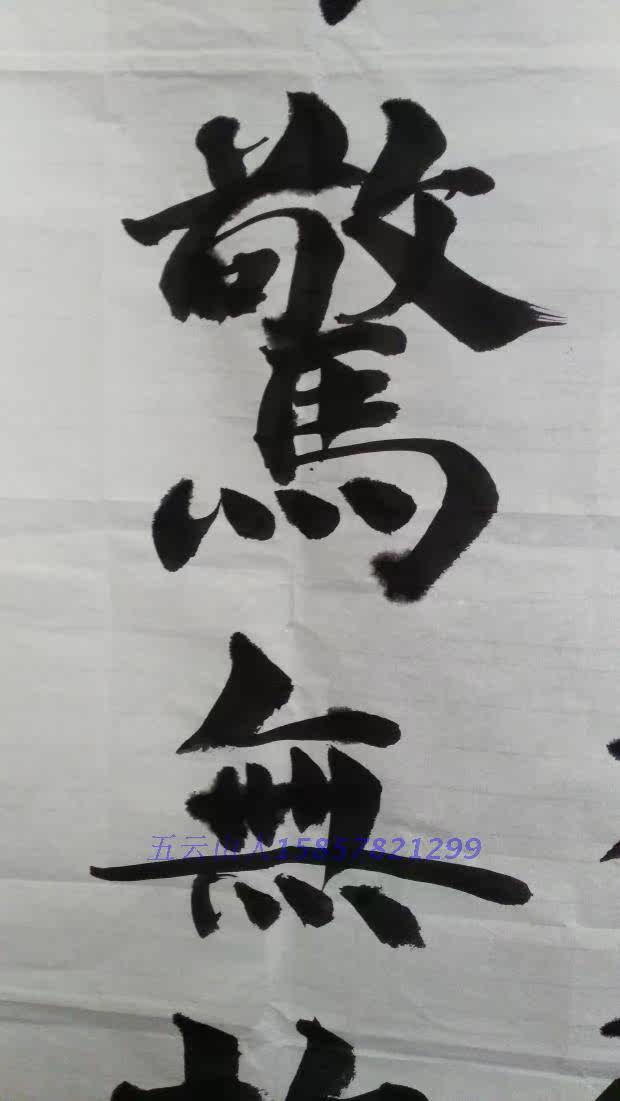 驚
無
五云山人15857821299